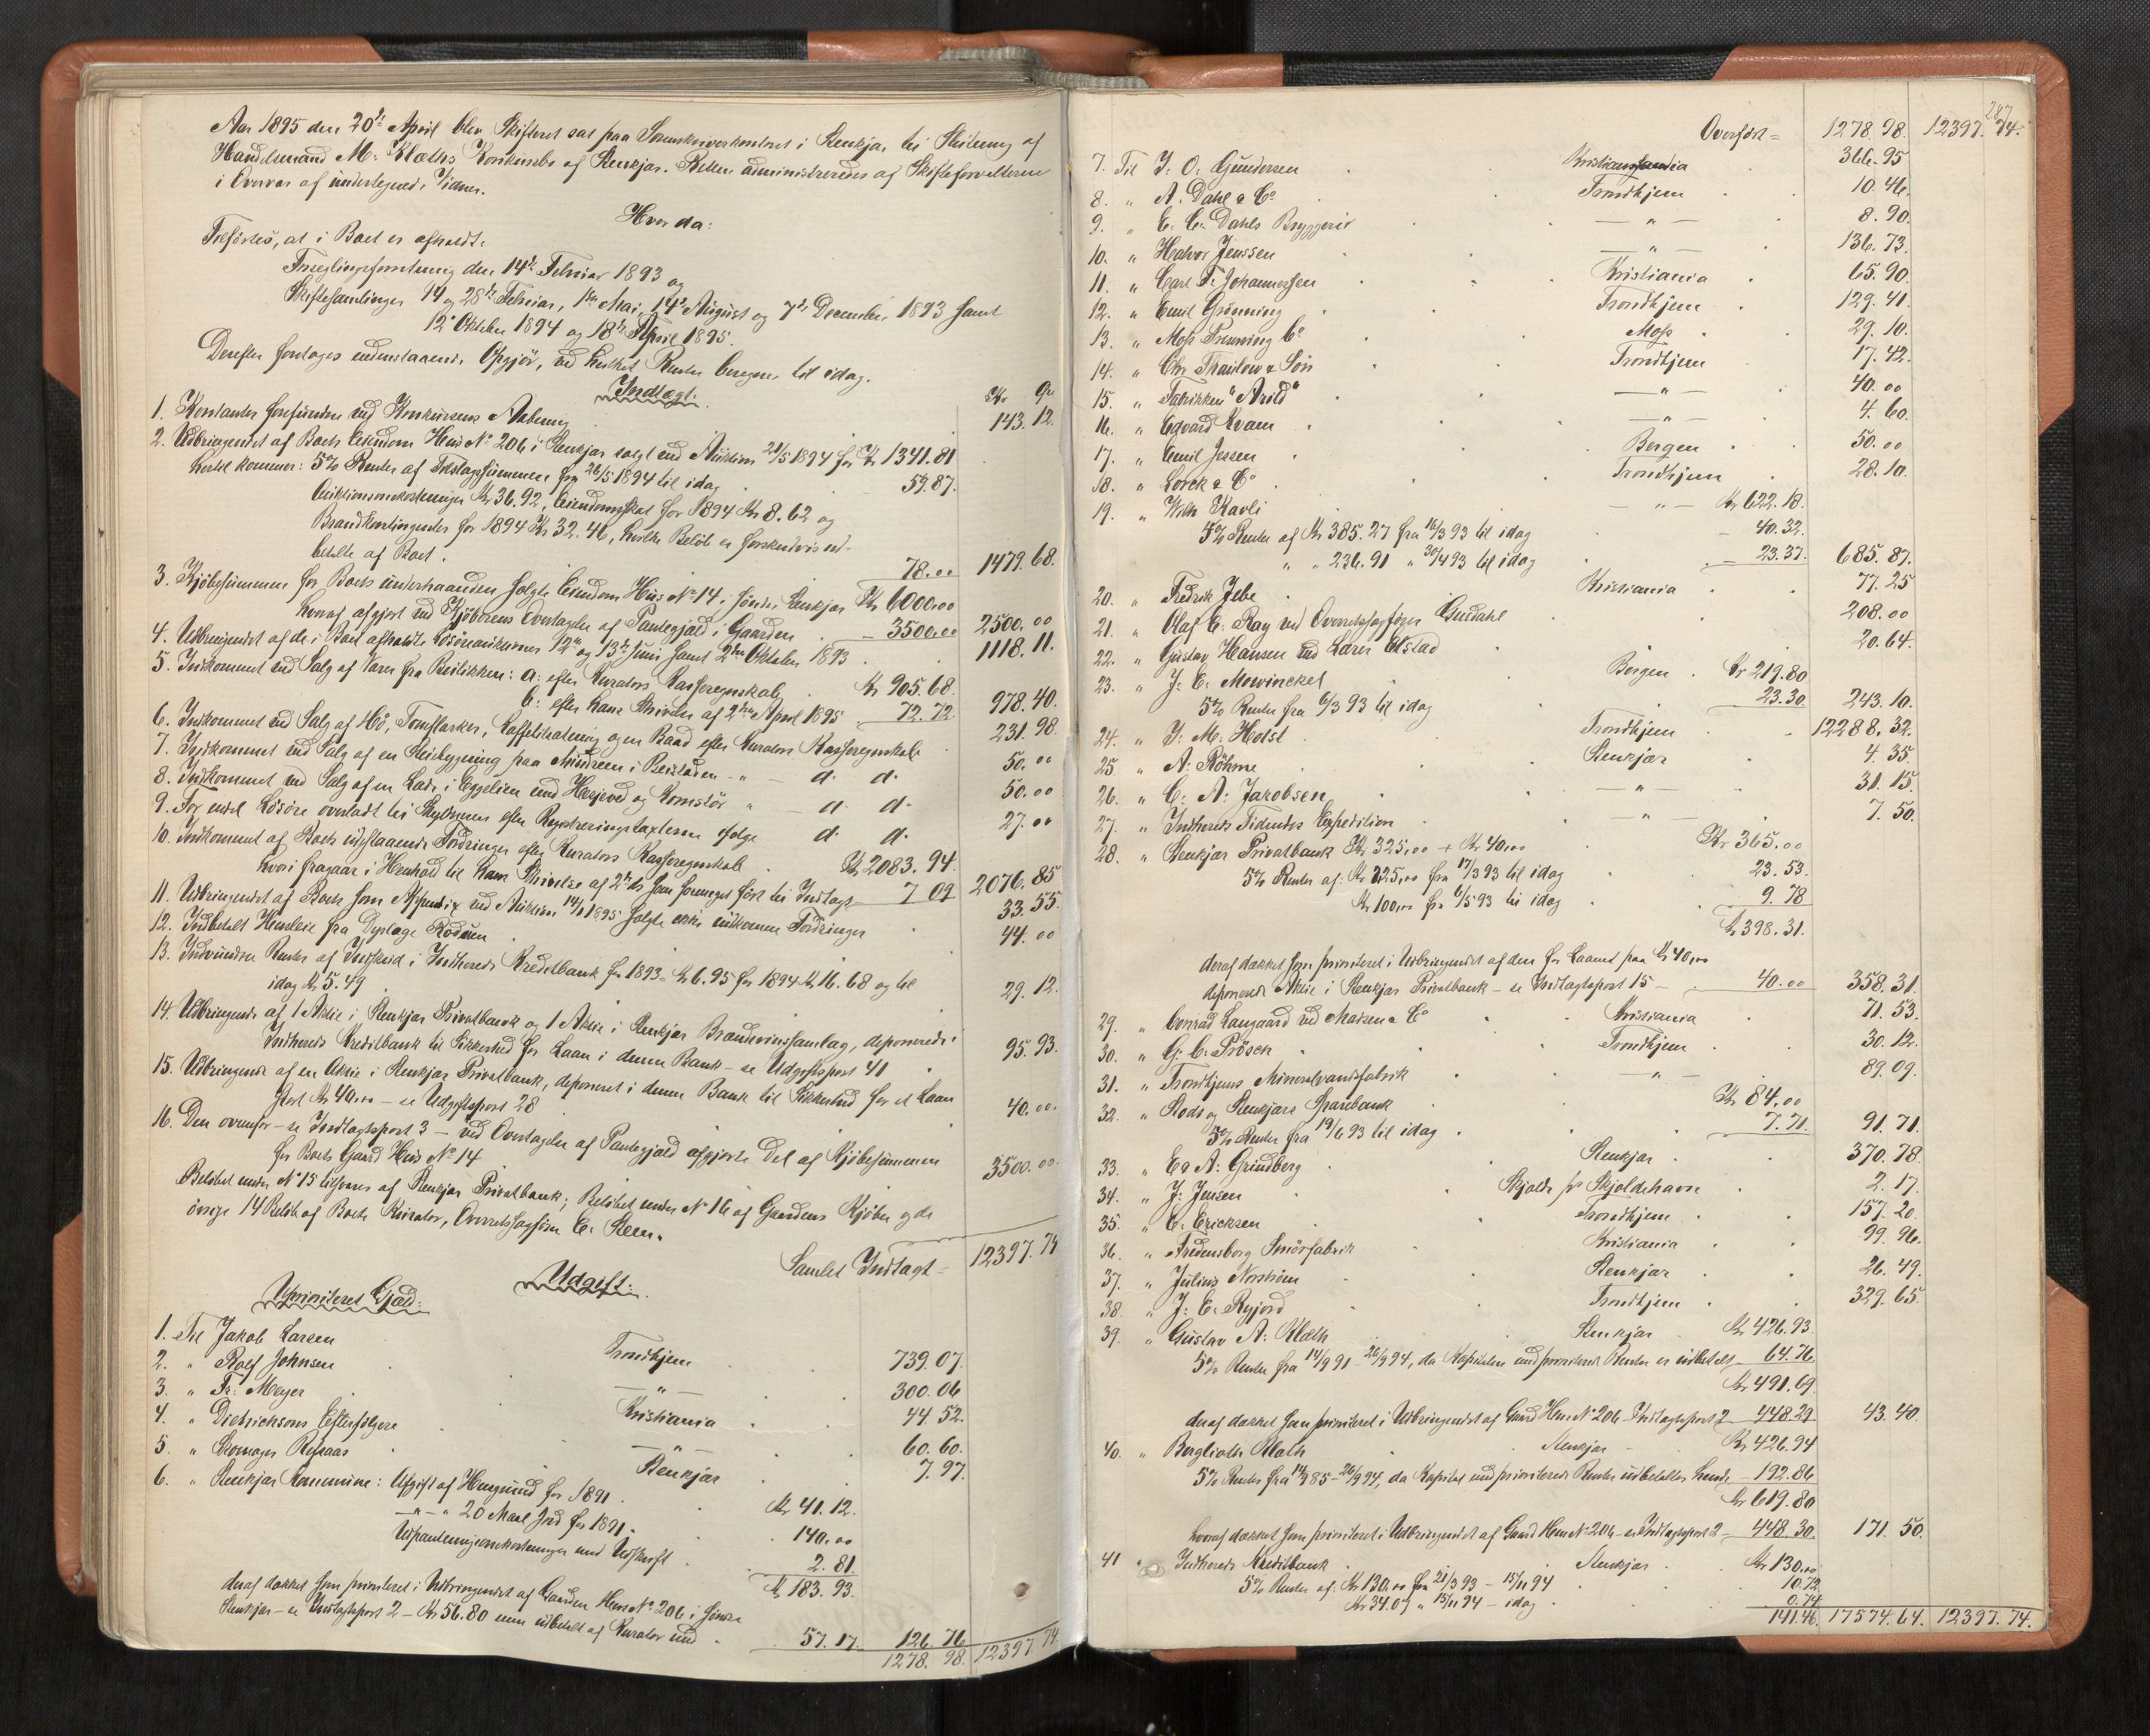 Aar 1895 den 20de April blev Skifteret sat paa Sorenskriverkontoret i Stenkjær til Slutning af
Handelsmand M. Klæths Konkursbo af Stenkjær. Retten administreredes af Skifteforvalteren
i Overvær af undertegnede Vidner.
Hvor da:
Tilførtes, at i Boet er afholdt:
Forseglingsforretning den 14de Februar 1893 og
Skiftesamlinger 14 og 28de Februar, 1ste Mai, 14de August og 7de December 1893 samt
12te Oktober 1894 og 18de April 1895.
Derefter foretages nedenstaaende Opgjør, ved hvilket Renter beregnes til idag.
Indtægt. Kr. Ør.
1. Kontanter forefundne ved Konkursens Aabning 143. 12.
2. Udbringendet af Boets Eiendom Hus No 206 i Stenkjær solgt ved Auktion 21/5 1894 for Kr 1341.81
hertil kommer: 5% Renter af Tilslagssummen fra 26/5 1894 til idag 59.87.
Auktionsomkostninger Kr 36.92, Eiendomsskat for 1894 Kr 8.62 og
Brandkontingenter for 1894 Kr 32.46, hvilke Beløb er forskudsvis ud-
betalte af Boet. 78.00 1479.68.
3. Kjøbesummen for Boets underhaanden solgte Eiendom Hus No 14 i søndre Stenkjær Kr 6000.00
hvoraf afgjort ved Kjøberens Overtagelse af Pantegjæld i Gaarden - 3500.00 2500.00
4. Udbringendet af de i Boet afholdte Løsøreauktioner 12te og 13de Juni samt 2den Oktober 1893 1118.11.
5. Indkommet ved Salg af Varer fra Butikken: a: efter Kurators Kasseregnskab Kr 905.68.
b: efter hans Skrivelse af 2den April 1895 72.72. 978.40.
6. Indkommet ved Salg af Hø, Tomflasker, og en Baad efter Kurators Kasseregnskab 231.98.
7. Indkommet ved Salg af en paa i Beitstaden - " - d. d. 50.00
8. Indkommet ved Salg af en Lade i Eggelien med og " - d. d. 50.00
9. For endel Løsøre overladt til efter Registreringstaxterne ifølge d. d. 27.00
10. Indkommet af Boets udestaaende Fordringer efter Kurators Kasseregnskab Kr 2083.94.
hvori fragaar i Henhold til hans Skrivelse af 2den ds som formeget ført til Indtægt 7 09 2076.85
11. Udbringendet af Boets som Appendix ved Auktion 14/1 1895 solgte ikke indkomne Fordringer 33.55.
12. Indbetalt Husleie fra Dyrlæge Rodum 44.00
13. Indvundne Renter af Indskud i Indherreds Kreditbank for 1893 = Kr 6.95 for 1894 Kr 16.68 og til
idag Kr 5.49 29.12.
14. Udbringende af 1 Aktie i Stenkjær Privatbank og 1 Aktie i Stenkjær Brændevinssamlag, deponerede i
Indherreds Kreditbank til Sikkerhed for Laan i denne Bank - se Udgiftspost 41 95.93.
15. Udbringende af en Aktie i Stenkjær Privatbank, deponeret i denne Bank til Sikkerhed for et Laan
stort Kr 40.00 - se Udgiftspost 28 40.00.
16. Den ovenfor - se Indtægtspost 3 - ved Overtagelse af Pantegjæld afgjorte Del af Kjøbesummen
for Boets Gaard Hus No 14 3500.00.
Beløbet under No 15 tilsvares af Stenkjær Privatbank; Beløbet under No 16 af Gaardens Kjøber og de
øvrige 14 Beløb af Boets Kurator, Overretssagfører E. Steen.
Samlet Indtægt = 12397.74
Udgift:
Uprioriteret Gjæld:
1. Til Jakob Larsen Trondhjem 739.07.
2. " Rolf Johnsen — " — 300.06
3. " Fr. Meyer Kristiania 44.52.
4. " Dietrichsons Efterfølgere — " — 60.60.
5. " Skomager Stenkjær 7.97.
6. " Stenkjær Kommune: Afgift af Husgrund for 1891 Kr 41.12.
— " — " 20 Maal Jord for 1891. 140.00
Udpantningsomkostninger med Udskrift 2.81
Kr 183.93.
deraf dækket som prioriteret i Udbringendet af Gaarden Hus No 206 i søndre
Stenkjær - se Indtægtspost 2 - Kr 56.80 men udbetalt af Kurator med 57.17. 126.76
1278.98. 12397.74
287
Overført = 1278.98. 12397.74.
7. Til J. O. Gundersen Kristiania 366.95
8. " A. Dahl & Co Trondhjem 10.46.
9. " E. C. Dahls Bryggeri — " — 8.90.
10. " Halvor Jenssen — " — 136.73.
11. " Carl F. Johannessen Kristiania 65.90.
12. " Emil Grönning Trondhjem 129.41.
13. " Moss Co Moss 29.10.
14. " Chr Thaulow & Søn Trondhjem 17.42.
15. " Fabrikken "Arild" — " — 40.00
16. " Edvard Kvam — " — 4.60.
17. " Emil Jessen Bergen 50.00
18. " Lorck & Co Trondhjem 28.10.
19. " Wilh Kavli — " — Kr 622.18.
5% Renter af Kr 385.27 fra 16/3 93 til idag - 40.32.
" " 236.91 " 30/4 93 til idag - 23.37. 685.87.
20. " Fredrik Jebe Kristiania 77.25
21. " Olaf E. Ray ved Overretssagfører Guldahl 208.00
22. " Gustav Hansen ved Lærer Elstad 20.64.
23. " J. E. Mowinckel Bergen Kr 219.80
5% Renter fra 6/3 93 til idag 23.30. 243.10.
24. " J. M. Holst Trondhjem 12288.32.
25. " A. Röhme Stenkjær 4.35.
26. " C. A. Jakobsen — " — 31.15.
27. " Indherreds Tidendes Expedition — " — 7.50.
28. " Stenkjær Privatbank Kr 325.00 + Kr 40.00 Kr 365.00
5% Renter af: Kr 225.00 fra 17/3 93 til idag 23.53.
Kr 100.00 fra 6/5 93 til idag 9.78
Kr 398.31.
deraf dækket som prioriteret i Udbringendet af den for Laanet paa Kr 40.00
deponerede Aktie i Stenkjær Privatbank - se Indtægtspost 15 - 40.00 358.31.
29. " Conrad Langaard ved Madsen & Co Kristiania 71.53.
30. " G. C. Prösch Trondhjem 30.12.
31. " Trondhjems Mineralvandsfabrik — " — 89.09.
32. " Stods og Stenkjærs Sparebank Kr 84.00
5% Renter fra 19/6 93 til idag 7.71. 91.71.
33. " Eg A. Grindberg Stenkjær 370.78.
34. " J. Jensen Skjolde pr Skjoldehavn 2.17.
35. " C. Ericksen Trondhjem 157.20.
36. " Fredensborg Smörfabrik Kristiania 99.96.
37. " Julius Norstrøm Stenkjær 26.49.
38. " J. E. Ryjord Trondhjem 329.65.
39. " Gustav A. Klæth Stenkjær Kr 426.93.
5% Renter fra 14/9 91 - 26/9 94, da Kapitalen med prioriterede Renter er udbetalt - 64.76.
Kr 491.69.
deraf dækket som prioriteret i Udbringendet af Gaard Hus No 206 Indtægtspost 2 - 448.29 43.40.
40. " Berglioth Klæth Stenkjær Kr 426.94
5% Renter fra 14/9 85 - 26/9 94, da Kapital med prioriterede Renter udbetaltes hende - 192.86
Kr 619.80
hvoraf dækket som prioriteret i Udbringendet af Gaard Hus No 206 - se Indtægtspost 2 - 448.30. 171.50.
41 " Indherreds Kreditbank Stenkjær Kr 130.00
5% Renter af: Kr 130.00 fra 21/3 93 - 15/11 94 10.72.
Kr 34.07 " 15/11 94 - idag 0.74
141.46. 17574.64. 12397.74.